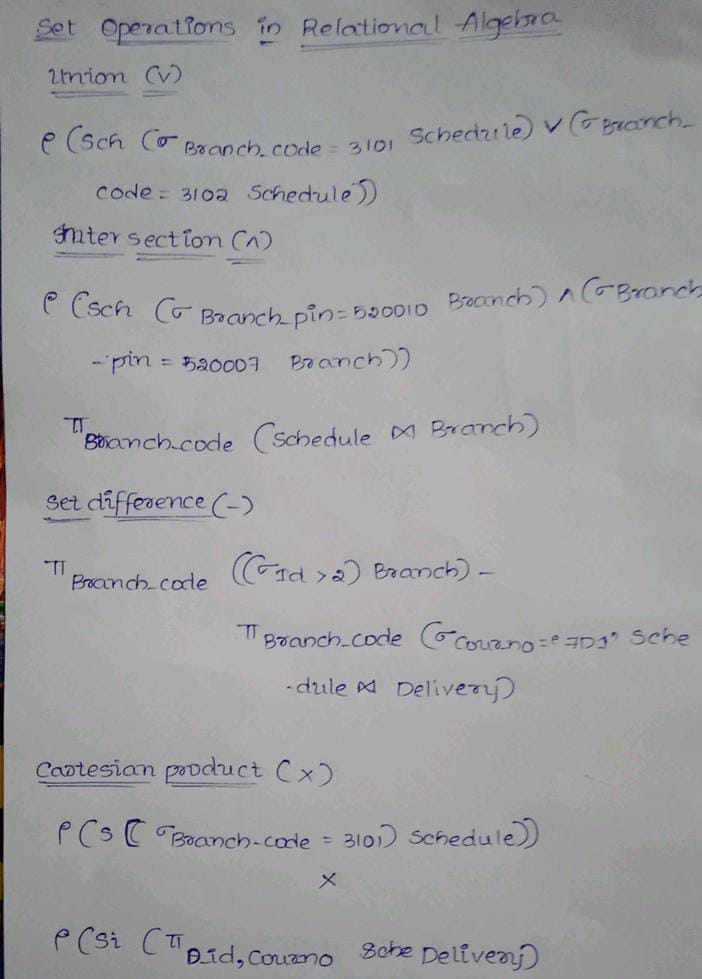 Set Operations in Relational Algebra
Union (∨)
ρ (Sch (σ Branch_code = 3101 Schedule) ∨ (σ Branch_
code = 3102 Schedule))
Inter section (∧)
ρ (Sch (σ Branch_pin = 520010 Branch) ∧ (σ Branch
-pin = 520007 Branch))
π Branch_code (Schedule ⋈ Branch)
Set difference (-)
π Branch_code ((σ Id > 2) Branch) -
π Branch_code (σ Courno = "7D1" Sche
-dule ⋈ Delivery)
Cartesian product (×)
ρ (S [ σ Branch-code = 3101) Schedule))
×
ρ (Si (π D_id, Courno Sche Delivery)